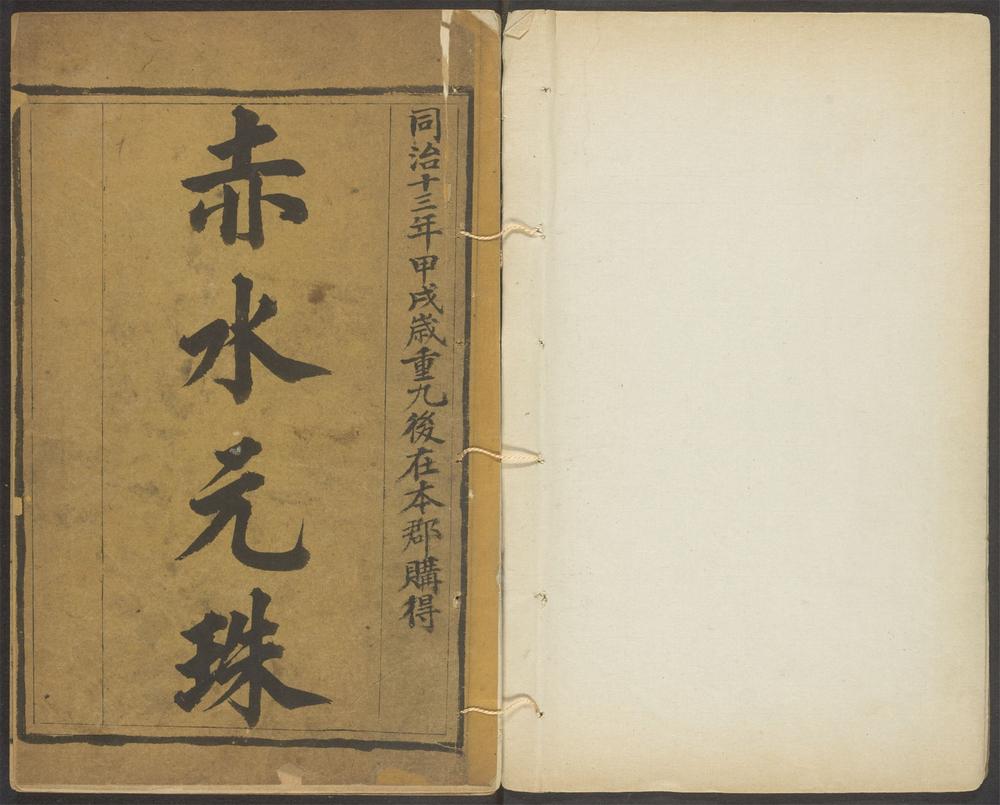 同治十三年甲戌歲重九後在本郡購得
赤水元珠